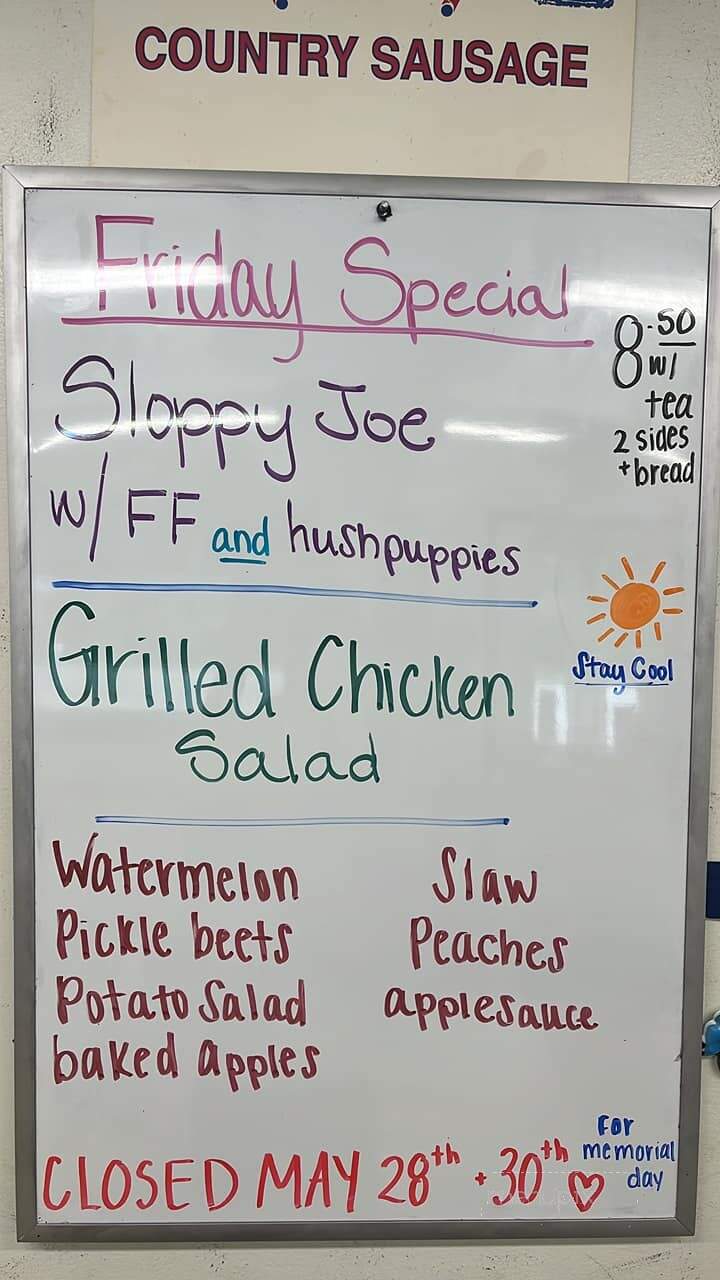 COUNTRY SAUSAGE
Friday Special
8.50
w/
tea
2 sides
+bread
Sloppy Joe
w/ FF and hushpuppies
Stay Cool
Grilled Chicken
Salad
Watermelon
Slaw
Pickle beets
Peaches
Potato Salad
applesauce
baked apples
CLOSED MAY 28th + 30th
For
memorial
day